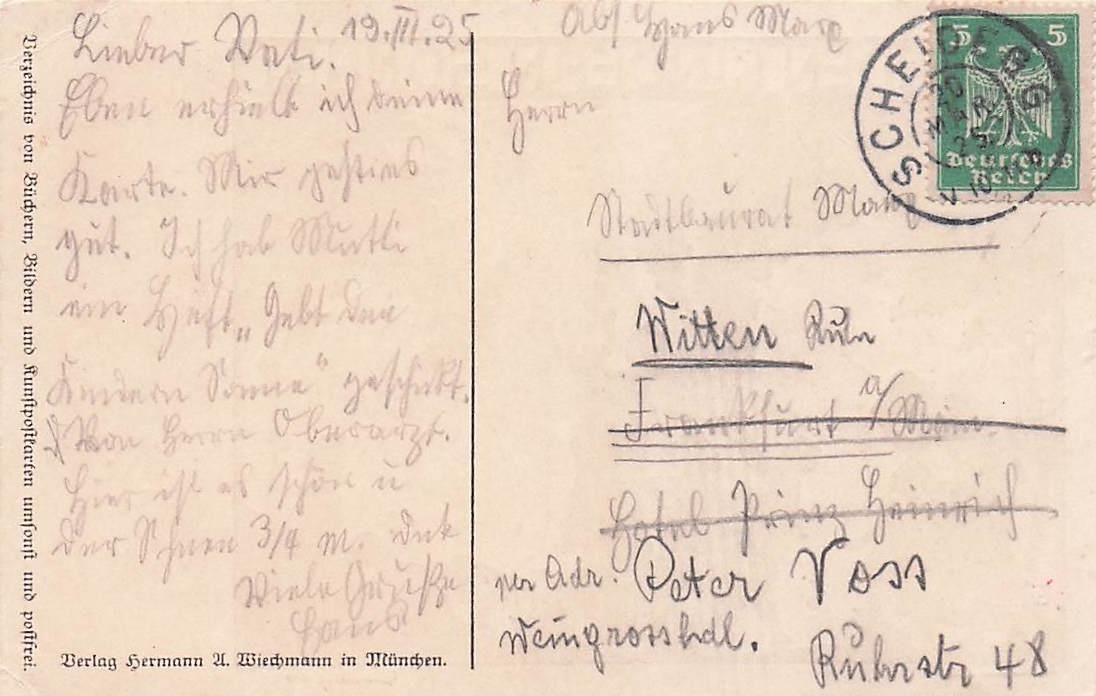 Verzeichnis von Büchern, Bildern und Kunstpostkarten umsonst und postfrei.
19.III.25
Lieber Vati.
Eben erhielt ich deine
Karte. Mir geht es
gut. Ich hab Mutti
ein Heft „Gebt den
Kindern Sonne“ geschikt.
Von Herrn Oberarzt.
Hier ist es schön u
der Schnee 3/4 m. dick
Viele Grüße
Hans
Verlag Hermann A. Wiechmann in München.
Abs Hans
Herrn
Stadtbaurat
Witten Ruhr
Frankfurt a/Main.
Hotel Prinz Heinrich
per Adr. Peter Voss
Weingrosshdl.
Ruhrstr 48
5 5
Deutsches
Reich
SCHEIDEGG
20
MAR
25